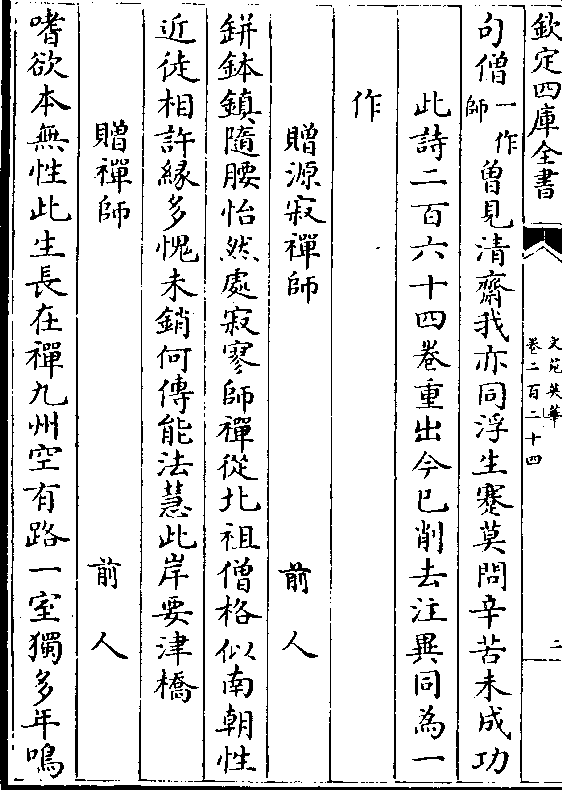 欽定四庫全書
文苑英華
卷二百二十四
二
句僧一作師曽見清齋我亦同浮生蹇莫問辛苦未成功
此詩二百六十四卷重出今已削去注異同為一
作
贈源寂禪師 前人
缾鉢鎮隨腰怡然處寂寥師禪從北祖僧格似南朝性
近徒相許緣多愧未銷何傳能法慧此岸要津橋
贈禪師 前人
嗜欲本無性此生長在禪九州空有路一室獨多年鳴